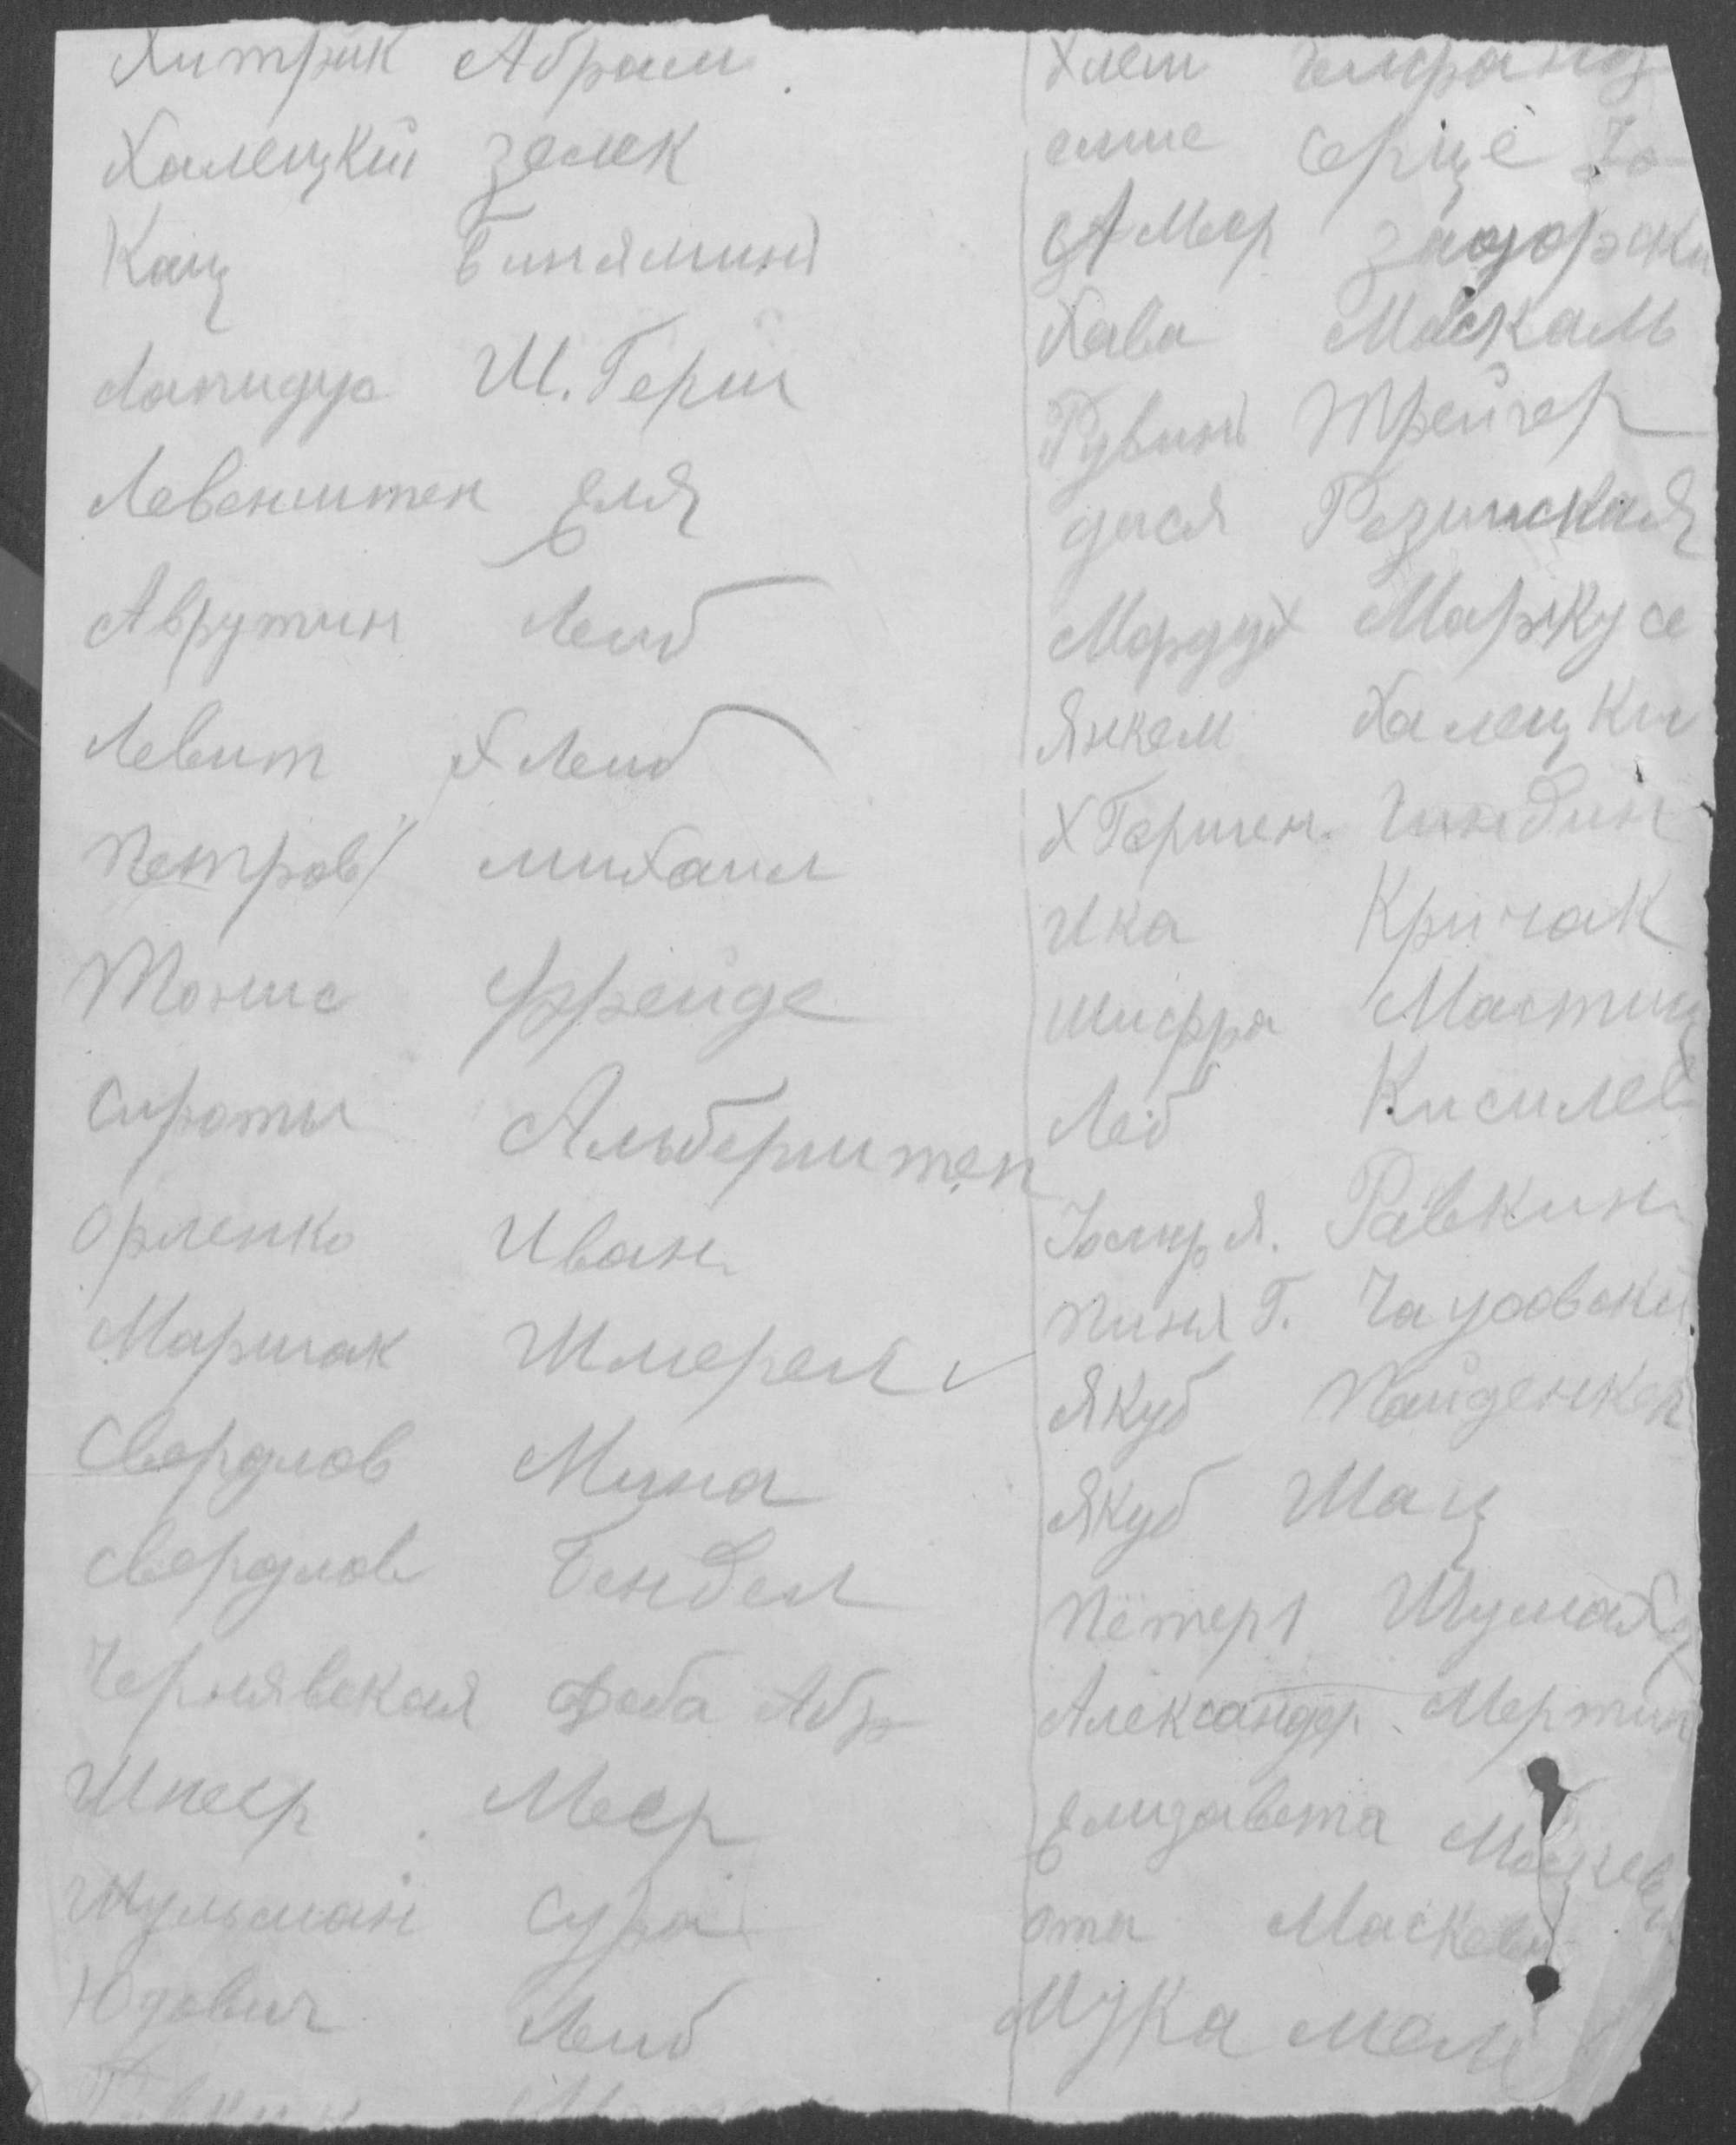 Хитрик Абрам
Халецкий Зелек
Кац Бинямин
Лапидус Ш. Герш
Левенштен Еля
Аврутин Леиб
Левит Х Леиб
Петров Михаил
Тонис Фрейде
Сироты Альберштен
Орленко Иван
Маршак Шмерел
Свердлов Мина
Свердлов Бендел
Чернявская Деба Абр
Шпеер Меер
Шульман Сура
Юдович Леиб
Хаем
елие Серце
Меер Загорски
Хава Маскаль
Рувин Трейгер
дася Резинская
Мордух Маркусе
Янкел Халецки
Х Гершен Гиндин
Ика Кричак
Шифра Мастиц
Леб Кисилев
Я. Равкин
Пиня Г. Чаусовски
Якуб Пайденкен
Якуб Шац
Петер Шумахе
Александр Мертин
Елизавета
Ота Маскеви
Мука мел